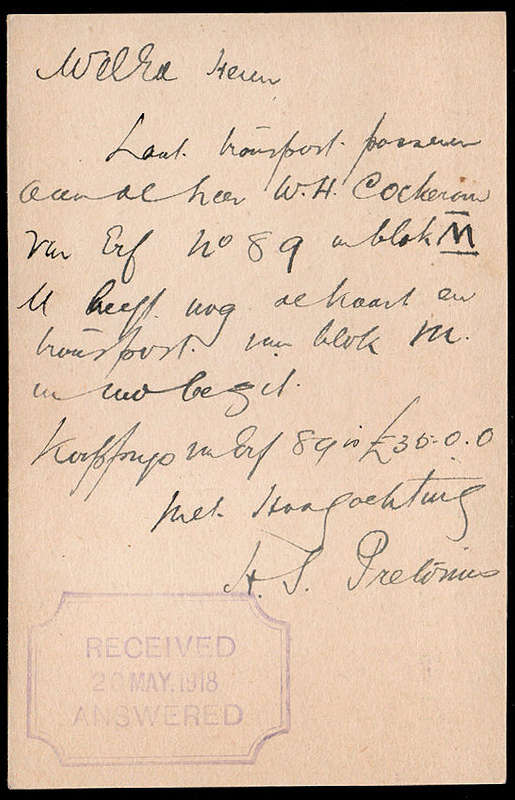 WelEd Heren
Laat transport passeren
aan de heer W. H. Cockeram
van Erf No 89 in blok M
U heeft nog de kaart en
transport van blok M.
in uw bezit.
Koopprijs van Erf 89 is £35.0.0
Met Hoogachting
H. S. Pretorius
RECEIVED
20 MAY. 1918
ANSWERED